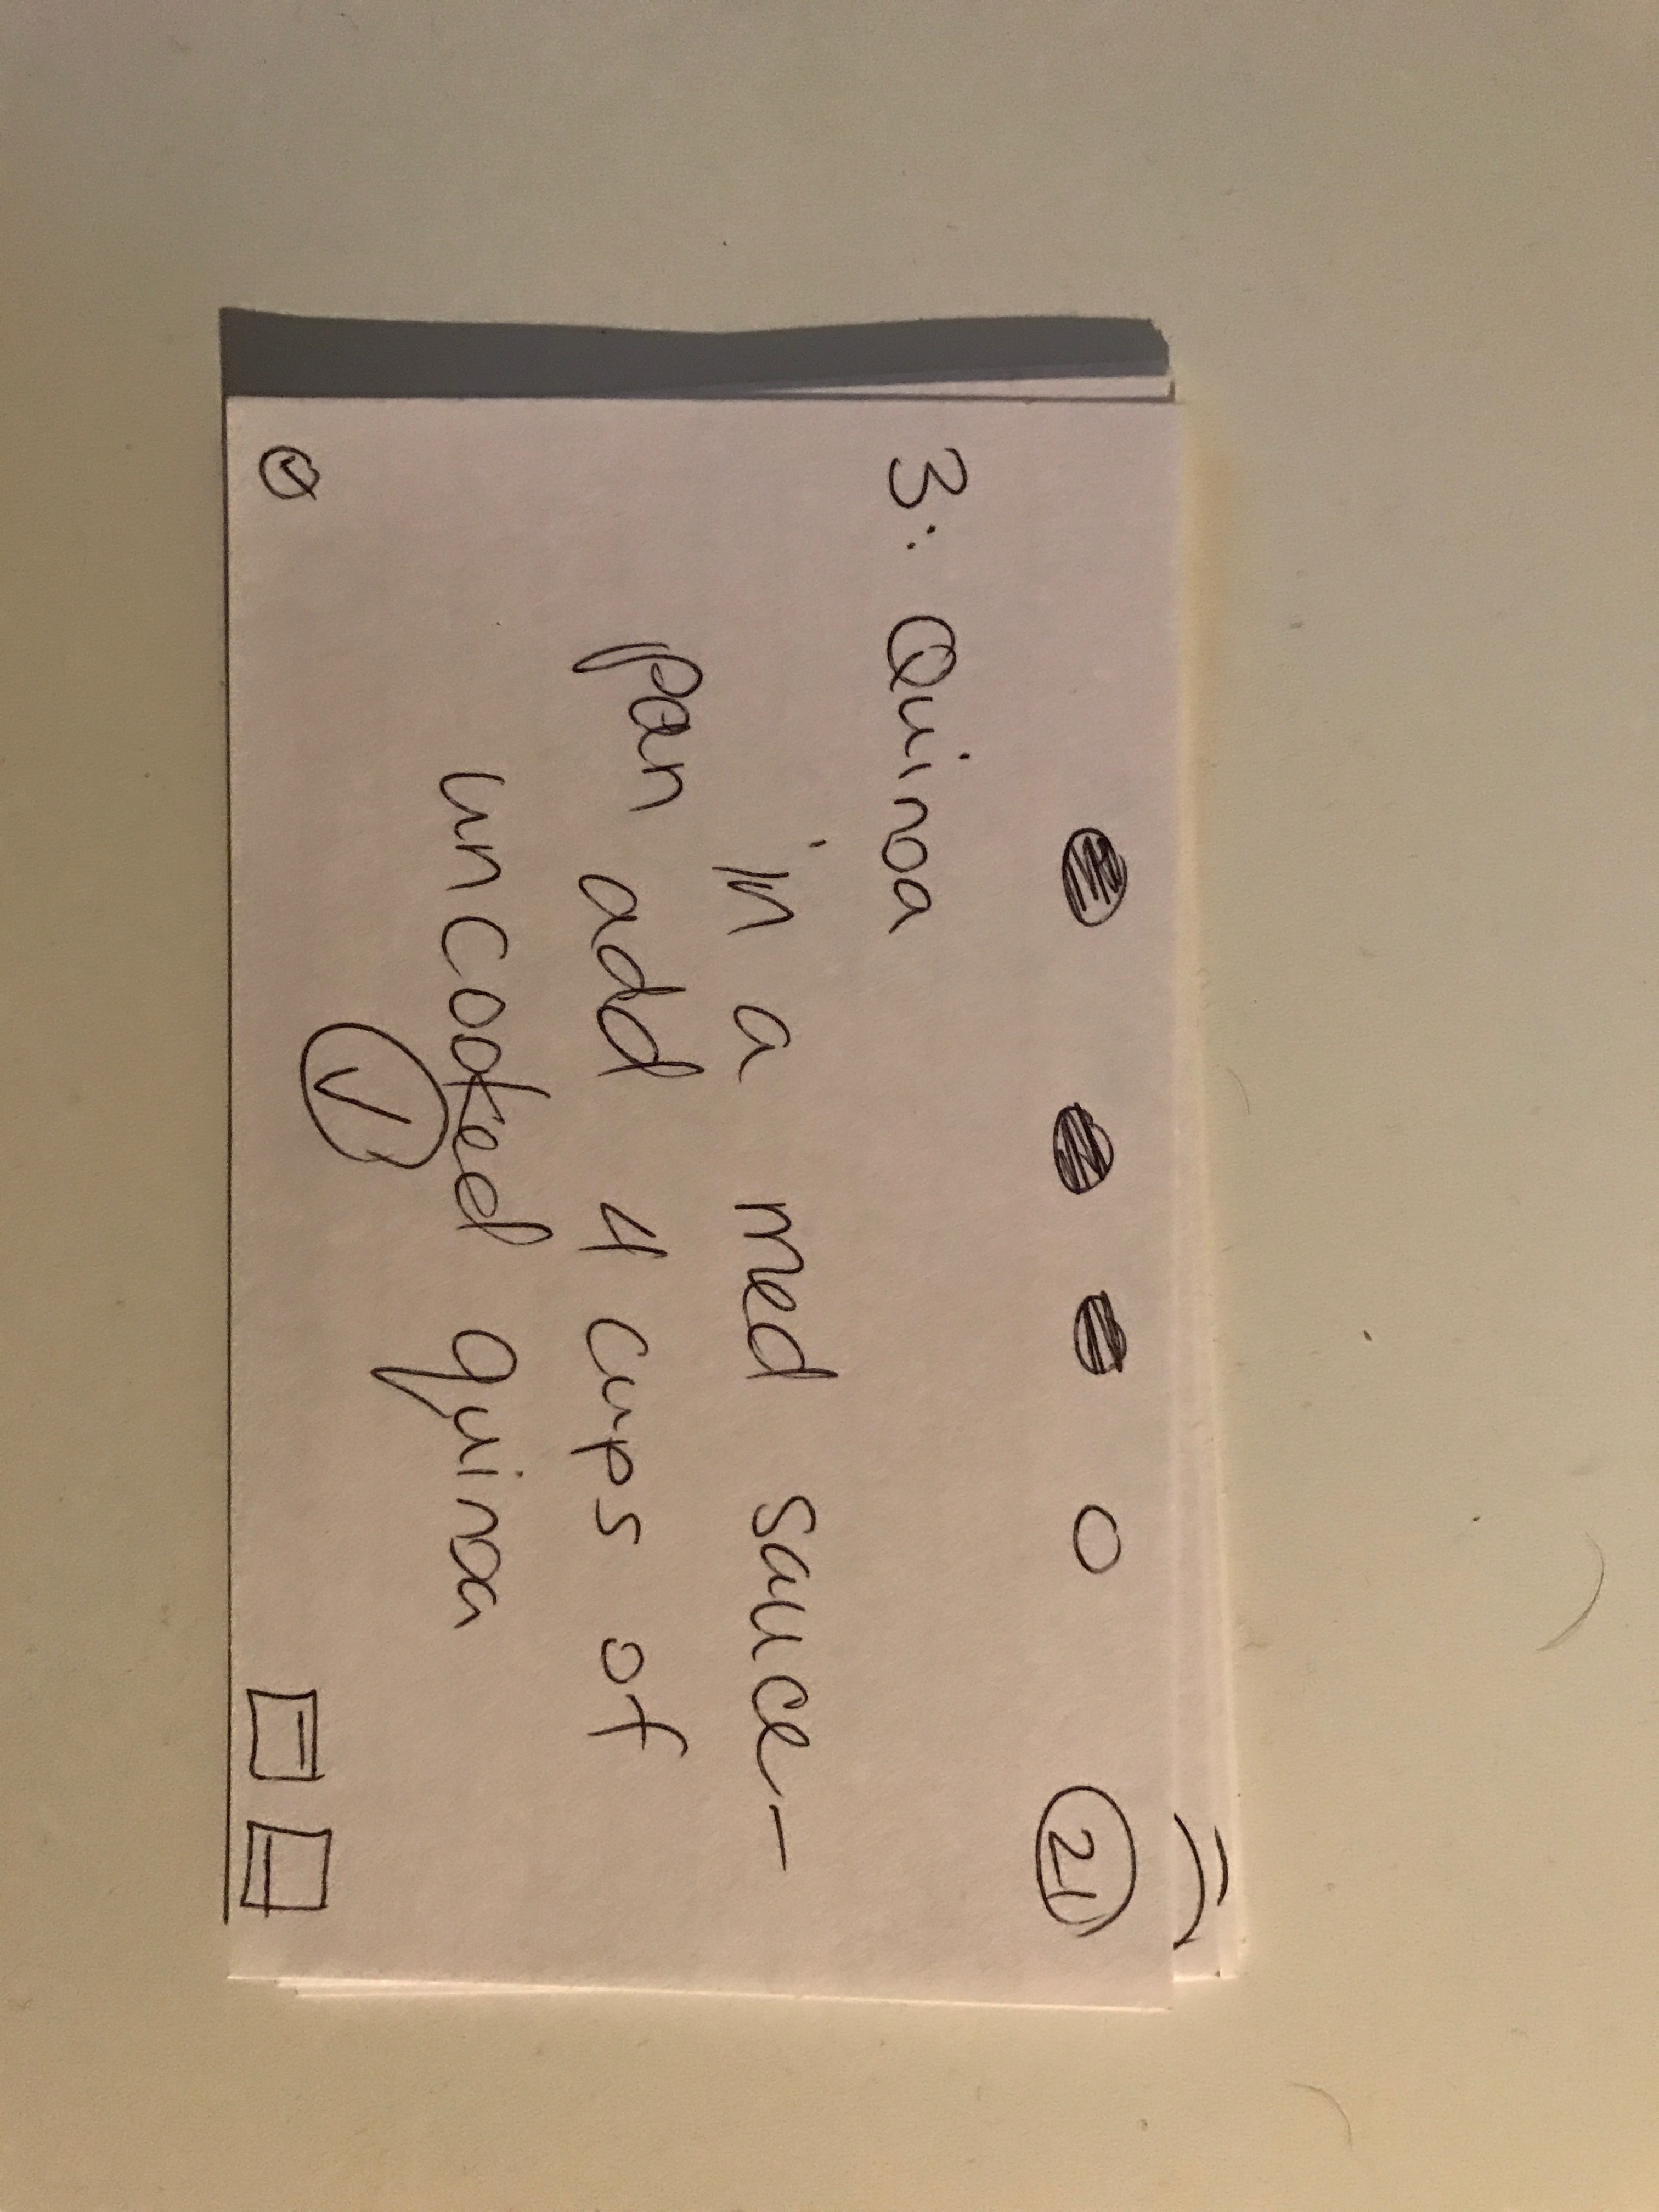 21
3: Quinoa
in a med sauce-
pan add 4 cups of
uncooked quinoa